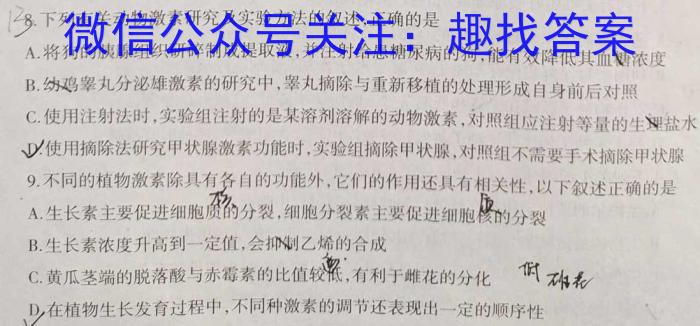 8.下列有关动物激素研究及实验方法的叙述,正确的是
微信公众号关注：趣找答案
A.将狗的胰腺组织研碎制成提取液,并注射给患糖尿病的狗,能有效降低其血糖浓度
B.幼鸡睾丸分泌雄激素的研究中,睾丸摘除与重新移植的处理形成自身前后对照
C.使用注射法时,实验组注射的是某溶剂溶解的动物激素,对照组应注射等量的生理盐水
D.使用摘除法研究甲状腺激素功能时,实验组摘除甲状腺,对照组不需要手术摘除甲状腺
9.不同的植物激素除具有各自的功能外,它们的作用还具有相关性,以下叙述正确的是
核 质
A.生长素主要促进细胞质的分裂,细胞分裂素主要促进细胞核的分裂
B.生长素浓度升高到一定值,会抑制乙烯的合成
高 低 雄花
C.黄瓜茎端的脱落酸与赤霉素的比值较低,有利于雌花的分化
D.在植物生长发育过程中,不同种激素的调节还表现出一定的顺序性